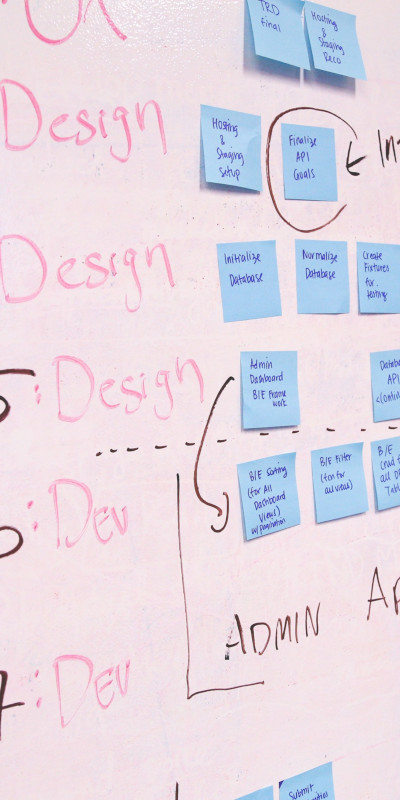 TRD
final
Hosting
&
Staging
Deco
Design
Hosting
&
Staging
Setup
Finalize
API
Goals
Design
Initialize
Database
Normalize
Database
Create
Fixtures
for
testing
: Design
Admin
Dashboard
B/E Frame
work
API
: Dev
B/E Sorting
(for All
Dashboard
Views)
w/pagination
B/E Filter
(for
all views)
B/E
ADMIN
: Dev
Submit